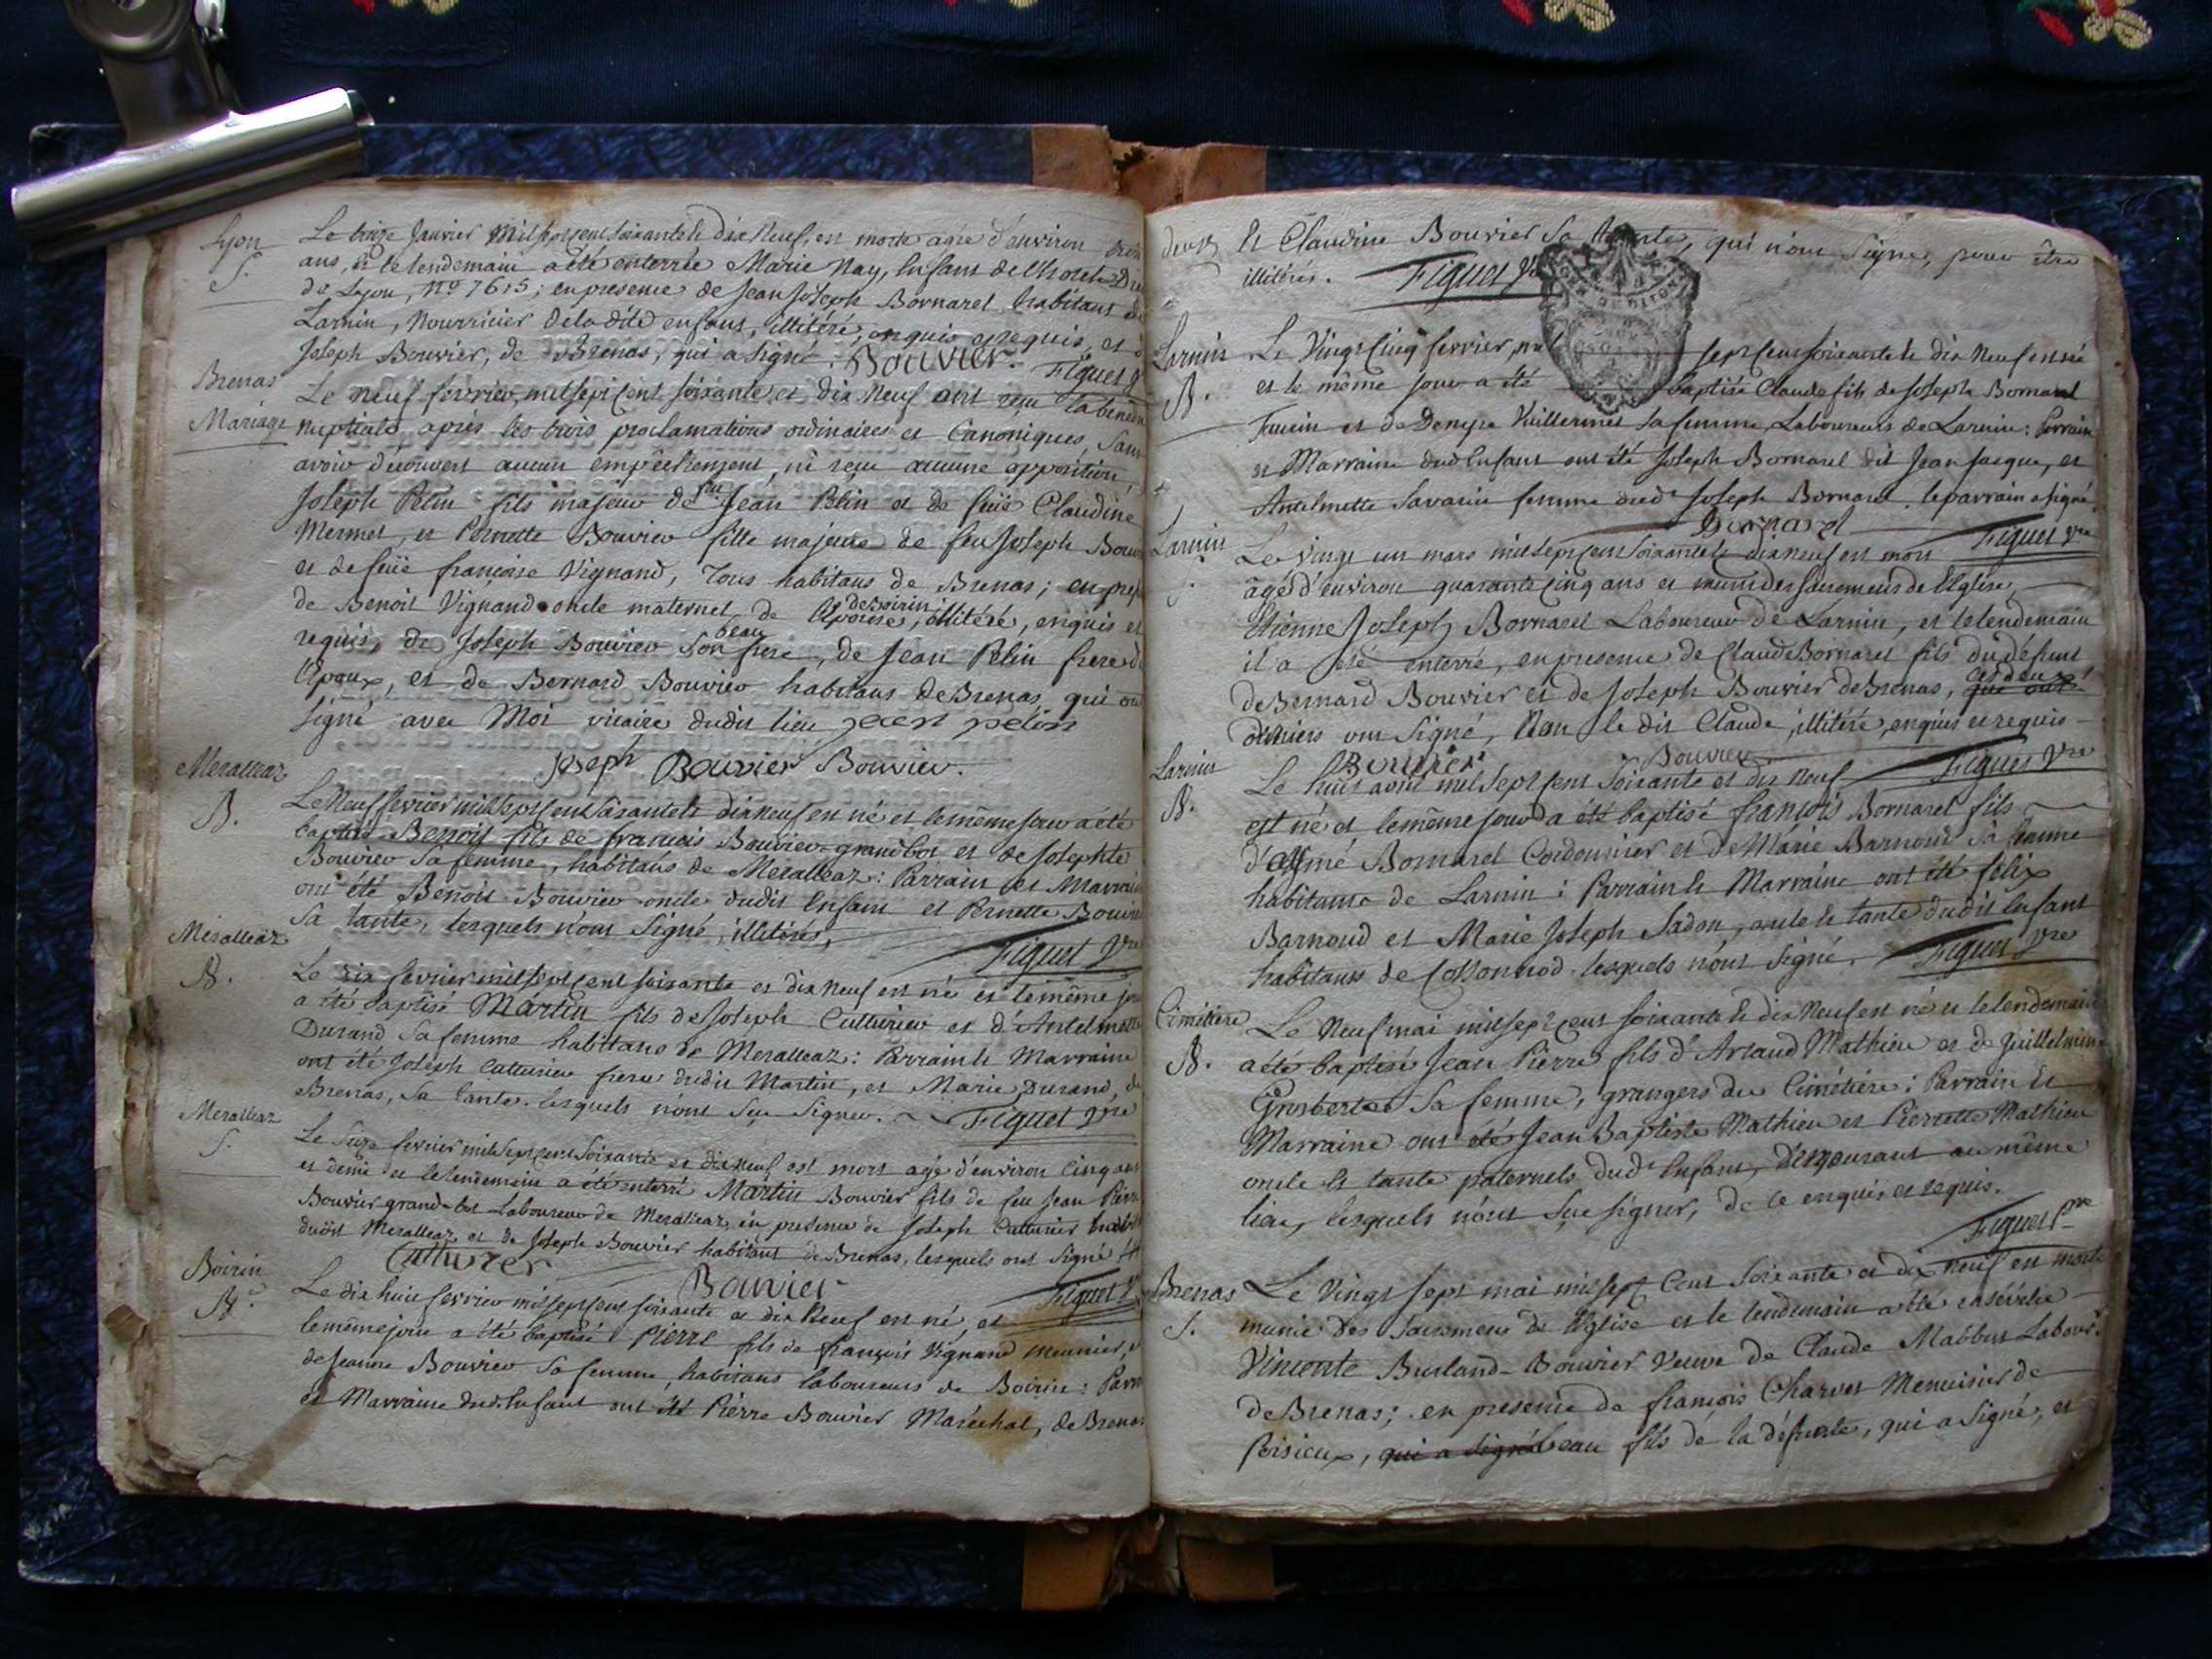 Lyon
S.
Le treize Janvier Mil sept cent soixante et dix neuf, est morte agée d'environ
ans, et le lendemain a été enterrée Marie Nay, Enfant de l'hotel Dieu
de Lyon, No 7615; en presence de Jean Joseph Bornarel habitant de
Larnin, Nourricier de la dite enfant, illitéré, enquis et requis, et
Joseph Bouvier, de Brenas, qui a signé. Bouvier. Figuet
Brenas
Mariage
Le neuf fevrier, mil sept cent soixante et dix neuf ont reçu la béned
nuptiale, après les trois proclamations ordinaires et Canoniques, sans
avoir decouvert aucun empêchement, ni reçu aucune opposition,
Joseph Pelin fils majeur de feu Jean Pelin et de feüe Claudine
Mermet, et Pernette Bouvier fille majeure de feu Joseph Bouv
et de feüe françoise Vignand, Tous habitans de Brenas; en pres
de Benoit Vignand oncle maternel de l'épouse, de Boirin, illitéré, enquis et
requis, de Joseph Bouvier son beau frere, de Jean Pelin frere de
l'Epoux, et de Bernard Bouvier habitans de Brenas, qui on
signé avec Moi vicaire dudit lieu jean pelin
Joseph Bouvier Bouvier.
Meralleaz
B.
Le Neuf fevrier mil sept cent soixante et dix neuf est né et le même jour a été
baptisé Benoit fils de francois Bouvier-grandbot et de Josephte
Bouvier sa femme, habitans de Meralleaz: Parrain et Marrai
ont été Benoit Bouvier oncle dudit Enfant et Pernette Bouvier
sa tante, lesquels n'ont signé, illitérés,
Figuet Vre
Meralleaz
B.
Le dix fevrier mil sept cent soixante et dix neuf est né et le même jou
a été baptisé Martin fils de Joseph Cutturier et d'Antelmette
Durand sa femme habitans de Meralleaz: Parrain et Marraine
ont été Joseph Cutturier frere dudit Martin, et Marie Durand, de
Brenas, sa tante. lesquels n'ont sçu signer. Figuet Vre
Meralleaz
S.
Le Seize fevrier mil sept cent soixante et dix neuf est mort agé d'environ cinq ans
et demie et le lendemain a été enterré Martin Bouvier fils de feu Jean Pierre
Bouvier grand-bot Laboureur de Meralleaz, en presence de Joseph Cutturier habit
dudit Meralleaz et de Joseph Bouvier habitant de Brenas, lesquels ont signé
Cutturer
Bouvier
Figuet V
Boirin
B.
Le dix huit fevrier mil sept cent soixante et dix neuf est né, et
le même jour a été baptisé Pierre fils de françois Vignand meunier,
de Jeanne Bouvier sa femme, habitans laboureurs de Boirin: Parr
et Marraine dud. Enfant ont été Pierre Bouvier Maréchal, de Brenas
deux Et Claudine Bouvier sa tante, qui n'ont signé, pour être
illitérés. Figuet
Larnin
B.
Le Vingt Cinq fevrier, mil sept cent soixante et dix neuf est né
et le même jour a été baptisé Claude fils de Joseph Bornarel
et de Denyse Vuillermet sa femme, Laboureurs de Larnin: Parrain
et Marraine dud. Enfant ont été Joseph Bornarel dit Jean Jacque, et
Antelmette Savarin femme dud. Joseph Bornarel. le parrain a signé
Bornarel
Figuet Vre
Larnin
S.
Le Vingt un mars mil sept cent soixante et dix neuf est mort
âgé d'environ quarante cinq ans et muni des sacremens de l'Eglise,
Etienne Joseph Bornarel Laboureur de Larnin, et le lendemain
il a été enterré, en presence de Claude Bornarel fils du défunt
de Bernard Bouvier et de Joseph Bouvier de Brenas, qui ont ces deux
derniers ont signé, Non le dit Claude, illitéré, enquis et requis
Bouvier Bouvier
Figuet Vre
Larnin
B.
Le huit avril mil sept cent soixante et dix neuf
est né et le même jour a été baptisé françois Bornarel fils
d'Aymé Bornarel Cordonnier et de Marie Barnoud sa femme
habitans de Larnin: Parrain et Marraine ont été felix
Barnoud et Marie Joseph Sadon, oncle et tante dudit Enfant
habitans de Collonnod. lesquels n'ont signé. Figuet Vre
Cimitiere
B.
Le Neuf mai mil sept cent soixante et dix neuf est né et le lendemain
a été baptisé Jean Pierre fils d'Artaud Mathieu et de Guillelmine
Grosbertet sa femme, grangers du Cimétière: Parrain et
Marraine ont été Jean Baptiste Mathieu et Pierrette Mathieu
oncle et tante paternels dud. Enfant, demeurant au même
lieu, lesquels n'ont sçu signer, de ce enquis et requis.
Figuet Vre
Brenas
S.
Le Vingt sept mai mil sept Cent soixante et dix neuf est morte
munie des sacremens de l'Eglise et le lendemain a été ensévelie
Vincente Burland-Bouvier Veuve de Claude Mabbut Labour.
de Brenas; en presence de françois Charvet Menuisier de
Poisieux, qui a signé beau fils de la défunte, qui a signé, et